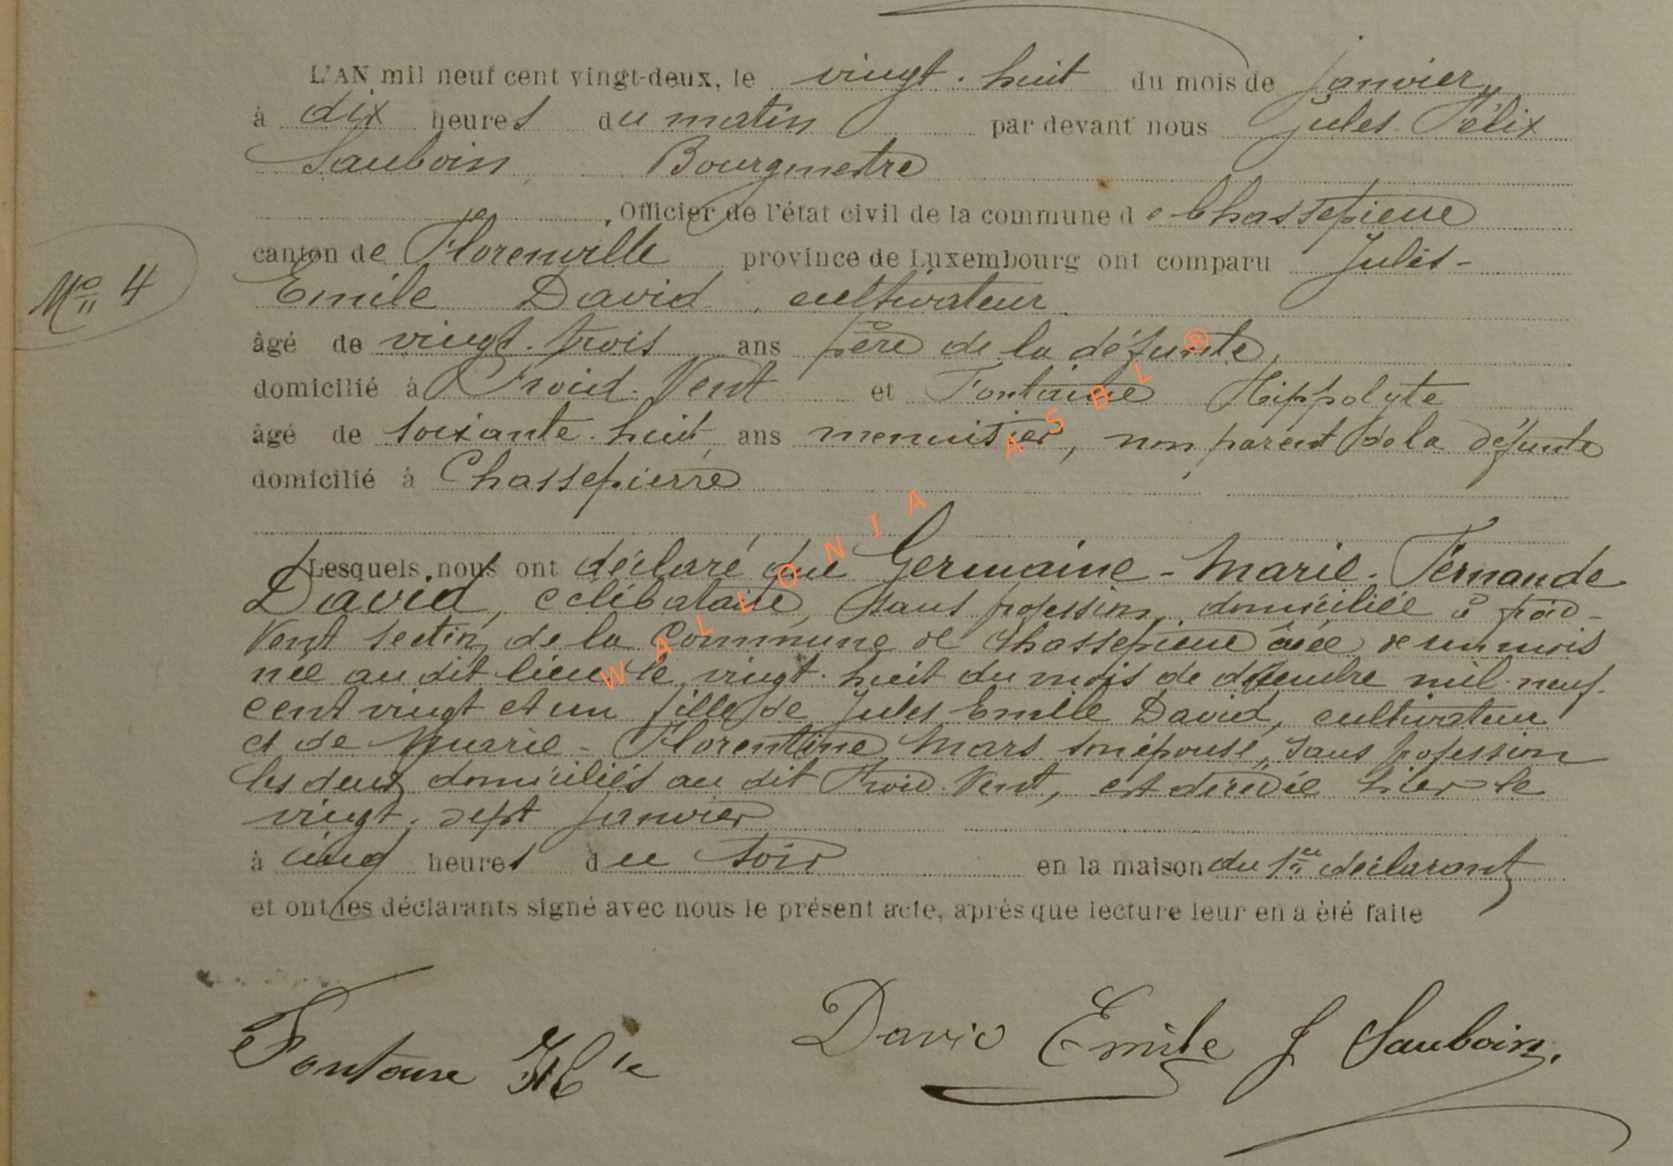 L'AN mil neuf cent vingt-deux, le vingt-huit du mois de janvier
à dix heures du matin par devant nous Jules Félix
Sauboin, Bourgmestre
, Officier de l'état civil de la commune de Chassepierre
canton de Florenville province de Luxembourg ont comparu Jules-
N° 4
Emile David, cultivateur
âgé de vingt-trois ans père de la défunte,
domicilié à Froid-Vent et Fontaine Hippolyte
âgé de soixante-huit ans menuisier, non parent de la défunte
domicilié à Chassepierre
Lesquels nous ont déclaré que Germaine-Marie-Fernande
David, célibataire, sans profession, domiciliée à froid-
Vent section de la Commune de Chassepierre âgée de un mois
née au dit lieu le vingt-huit du mois de décembre mil-neuf-
cent vingt et un fille de Jules Emile David, cultivateur
et de Marie-Florentine Mars son épouse, sans profession
les deux domiciliés au dit Froid-Vent, est décédée hier le
vingt-sept janvier
à cinq heures du soir en la maison du 1er déclarant
et ont les déclarants signé avec nous le présent acte, après que lecture leur en a été faite
Fontaine Hte David Emile J Sauboin.
WALLONIA ASBL ®